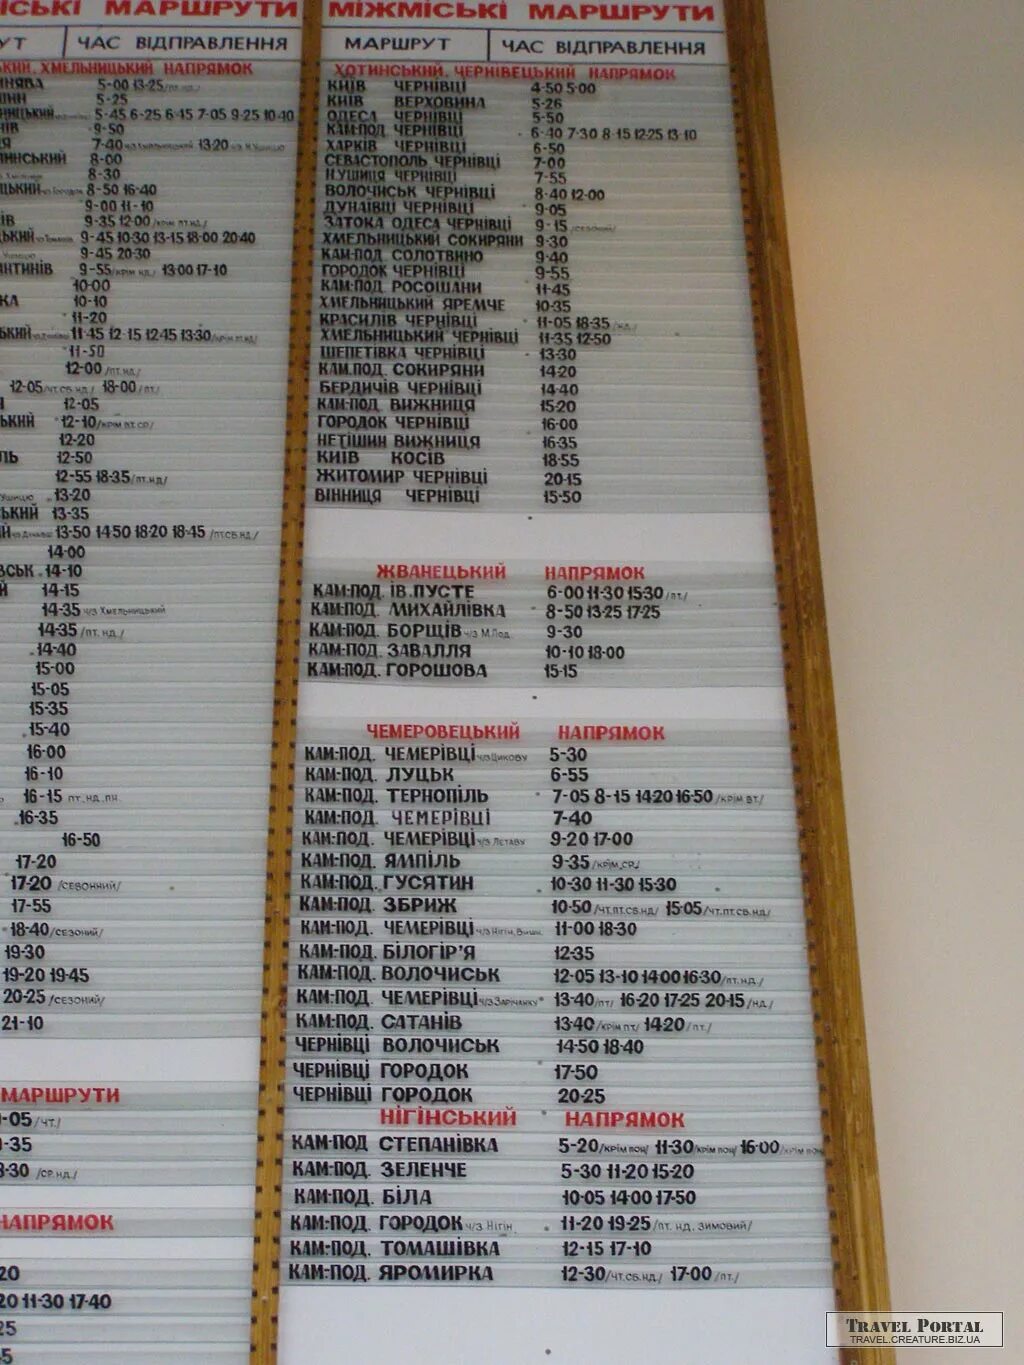 МІСЬКІ МАРШРУТИ
ЧАС ВІДПРАВЛЕННЯ
ХМЕЛЬНИЦЬКИЙ НАПРЯМОК
5-00 13-25 /ПТ.НД./
5-25
5-45 6-25 6-15 7-05 9-25 10-10
9-50
7-40 13-20
8-00
8-30
8-50 16-40
9-00 11-10
9-35 12-00 /КРІМ ПТ.НД./
9-45 10-30 13-15 18-00 20-40
9-45 20-30
9-55 /КРІМ НД./ 13-00 17-10
10-00
10-10
11-20
11-45 12-15 12-45 13-30
11-50
12-00 /ПТ.НД./
12-05 /ЧТ.СБ.НД./ 18-00 /ПТ./
12-05
12-10 /КРІМ ВТ.СР./
12-20
12-50
12-55 18-35 /ПТ.НД./
13-20
13-35
13-50 14-50 18-20 18-45 /ПТ.СБ.НД./
14-00
14-10
14-15
14-35 Ч/З ХМЕЛЬНИЦЬКИЙ
14-35 /ПТ. НД./
14-40
15-00
15-05
15-35
15-40
16-00
16-10
16-15 ПТ. НД. ПН.
16-35
16-50
17-20
17-20 /СЕЗОННИЙ/
17-55
18-40 /СЕЗОНИЙ/
19-30
19-20 19-45
20-25 /СЕЗОНИЙ/
21-10
МАРШРУТИ
-05 /ЧТ./
-35
-30 /СР.НД./
НАПРЯМОК
20
20 11-30 17-40
25
МІЖМІСЬКІ МАРШРУТИ
МАРШРУТ ЧАС ВІДПРАВЛЕННЯ
ХОТИНСЬКИЙ, ЧЕРНІВЕЦЬКИЙ НАПРЯМОК
КИЇВ ЧЕРНІВЦІ 4-50 5-00
КИЇВ ВЕРХОВИНА 5-26
ОДЕСА ЧЕРНІВЦІ 5-50
КАМ-ПОД ЧЕРНІВЦІ 6-40 7-30 8-15 12-25 13-10
ХАРКІВ ЧЕРНІВЦІ 6-50
СЕВАСТОПОЛЬ ЧЕРНІВЦІ 7-00
Н.УШИЦЯ ЧЕРНІВЦІ 7-55
ВОЛОЧИСЬК ЧЕРНІВЦІ 8-40 12-00
ДУНАЇВЦІ ЧЕРНІВЦІ 9-05
ЗАТОКА ОДЕСА ЧЕРНІВЦІ 9-15 /СЕЗОНИЙ/
ХМЕЛЬНИЦЬКИЙ СОКИРЯНИ 9-30
КАМ-ПОД СОЛОТВИНО 9-40
ГОРОДОК ЧЕРНІВЦІ 9-55
КАМ-ПОД. РОСОШАНИ 11-45
ХМЕЛЬНИЦЬКИЙ ЯРЕМЧЕ 10-35
КРАСИЛІВ ЧЕРНІВЦІ 11-05 18-35 /НД./
ХМЕЛЬНИЦЬКИЙ ЧЕРНІВЦІ 11-35 12-50
ШЕПЕТІВКА ЧЕРНІВЦІ 13-30
КАМ.ПОД. СОКИРЯНИ 14-20
БЕРДИЧІВ ЧЕРНІВЦІ 14-40
КАМ-ПОД. ВИЖНИЦЯ 15-20
ГОРОДОК ЧЕРНІВЦІ 16-00
НЕТІШИН ВИЖНИЦЯ 16-35
КИЇВ КОСІВ 18-55
ЖИТОМИР ЧЕРНІВЦІ 20-15
ВІННИЦЯ ЧЕРНІВЦІ 15-50
ЖВАНЕЦЬКИЙ НАПРЯМОК
КАМ-ПОД. ІВ.ПУСТЕ 6-00 11-30 15-30 /ПТ./
КАМ-ПОД. МИХАЙЛІВКА 8-50 13-25 17-25
КАМ-ПОД. БОРЩІВ Ч/З М.Под. 9-30
КАМ-ПОД. ЗАВАЛЛЯ 10-10 18-00
КАМ-ПОД. ГОРОШОВА 15-15
ЧЕМЕРОВЕЦЬКИЙ НАПРЯМОК
КАМ-ПОД. ЧЕМЕРІВЦІ Ч/З ЦИКОВУ 5-30
КАМ-ПОД. ЛУЦЬК 6-55
КАМ-ПОД. ТЕРНОПІЛЬ 7-05 8-15 14-20 16-50 /КРІМ ВТ./
КАМ-ПОД. ЧЕМЕРІВЦІ 7-40
КАМ-ПОД. ЧЕМЕРІВЦІ Ч/З ЛЄТАВУ 9-20 17-00
КАМ-ПОД. ЯМПІЛЬ 9-35 /КРІМ.СР./
КАМ-ПОД. ГУСЯТИН 10-30 11-30 15-30
КАМ-ПОД. ЗБРИЖ 10-50 /ЧТ.ПТ.СБ.НД./ 15-05 /ЧТ.ПТ.СБ.НД./
КАМ-ПОД. ЧЕМЕРІВЦІ Ч/З НІГІН, 11-00 18-30
КАМ-ПОД. БІЛОГІР'Я 12-35
КАМ-ПОД. ВОЛОЧИСЬК 12-05 13-10 14-00 16-30 /ПТ.НД./
КАМ-ПОД. ЧЕМЕРІВЦІ Ч/З ЗАРІЧАНКУ 13-40 /ПТ/ 16-20 17-25 20-15 /НД./
КАМ-ПОД. САТАНІВ 13-40 /КРІМ ПТ/ 14-20 /ПТ./
ЧЕРНІВЦІ ВОЛОЧИСЬК 14-50 18-40
ЧЕРНІВЦІ ГОРОДОК 17-50
ЧЕРНІВЦІ ГОРОДОК 20-25
НІГІНСЬКИЙ НАПРЯМОК
КАМ-ПОД СТЕПАНІВКА 5-20 /КРІМ ПОН/ 11-30 /КРІМ ПОН/ 16-00 /КРІМ ПОН
КАМ-ПОД. ЗЕЛЕНЧЕ 5-30 11-20 15-20
КАМ-ПОД. БІЛА 10-05 14-00 17-50
КАМ-ПОД. ГОРОДОК Ч/З НІГІН. 11-20 19-25 /ПТ. НД. ЗИМОВИЙ/
КАМ-ПОД. ТОМАШІВКА 12-15 17-10
КАМ-ПОД. ЯРОМИРКА 12-30 /ЧТ.СБ.НД./ 17-00 /ПТ./
TRAVEL PORTAL
TRAVEL.CREATURE.BIZ.UA